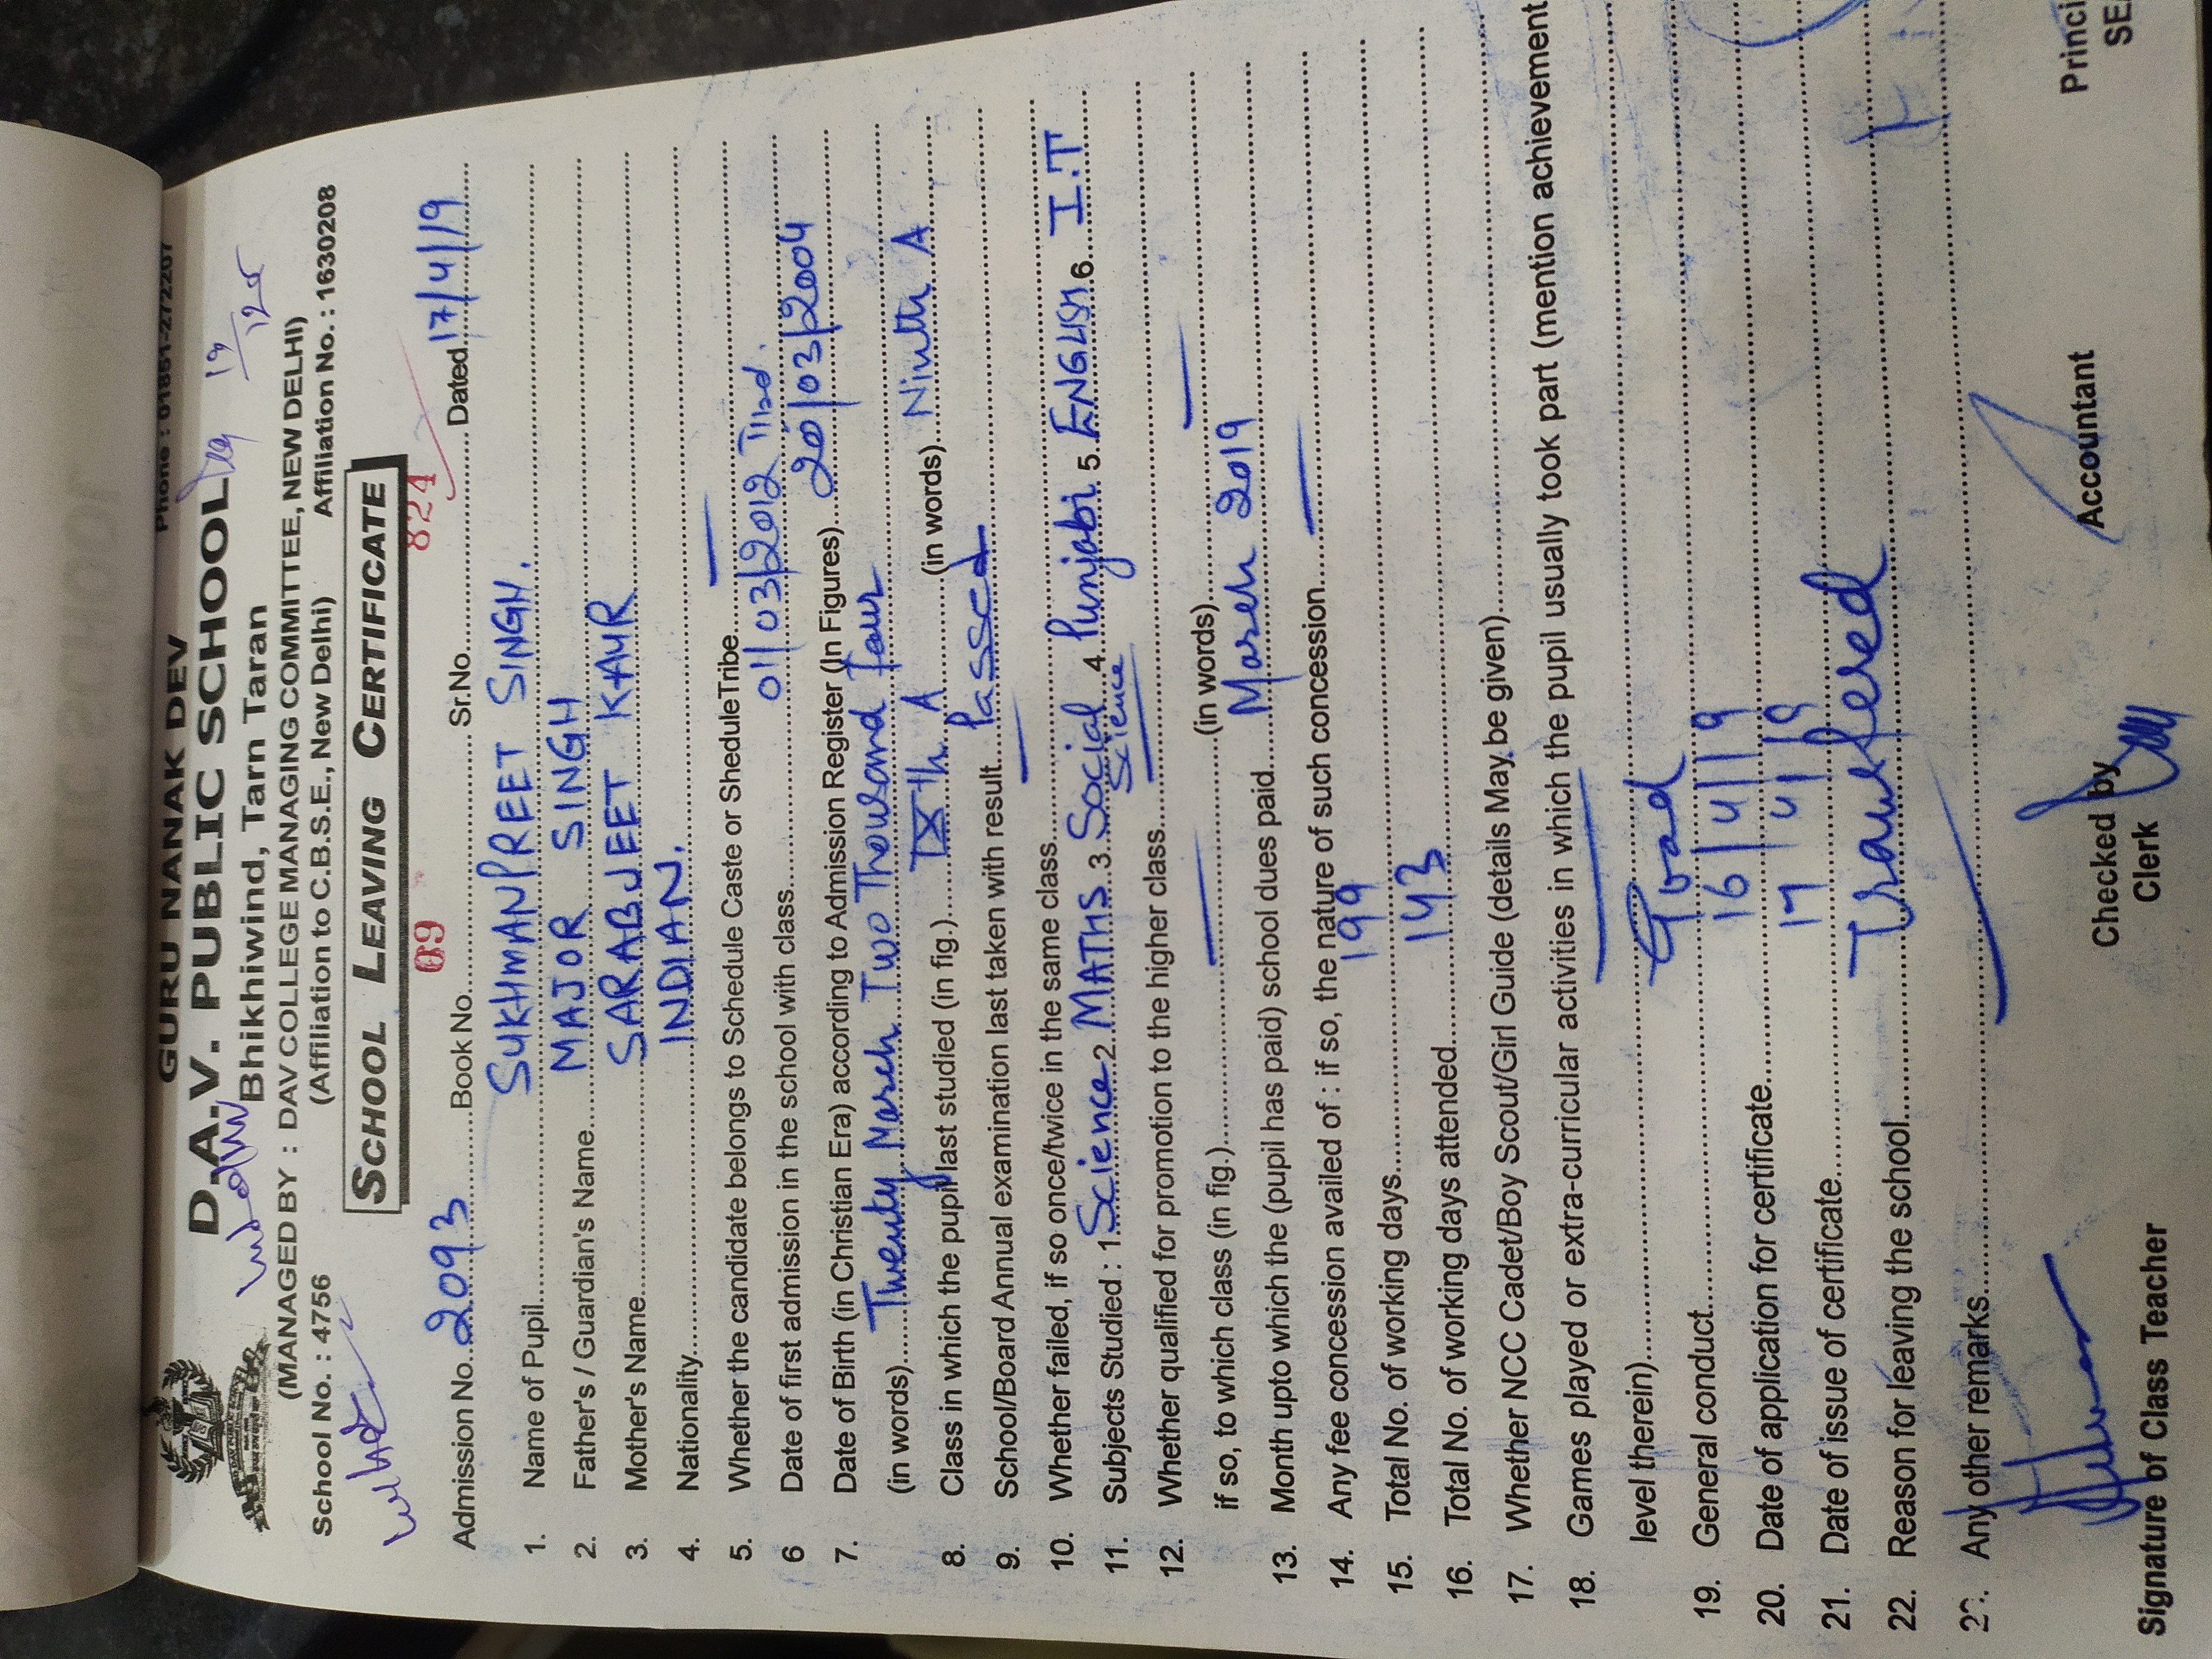 GURU NANAK DEV
Phone : 01851-2722207
D.A.V. PUBLIC SCHOOL
Bhikhiwind, Tarn Taran
(MANAGED BY : DAV COLLEGE MANAGING COMMITTEE, NEW DELHI)
(Affiliation to C.B.S.E., New Delhi)
School No. : 4756 Affiliation No. : 1630208
SCHOOL LEAVING CERTIFICATE
69 824
Admission No. 2093 Book No. Sr.No. Dated 17/4/19
1. Name of Pupil SUKHMANPREET SINGH.
2. Father's / Guardian's Name MAJOR SINGH
3. Mother's Name SARABJEET KAUR
4. Nationality INDIAN.
5. Whether the candidate belongs to Schedule Caste or SheduleTribe —
6 Date of first admission in the school with class 01/03/2012
7. Date of Birth (in Christian Era) according to Admission Register (In Figures) 20/03/2004
(in words) Twenty March Two Thousand four
8. Class in which the pupil last studied (in fig.) IXth A (in words) Ninth A
9. School/Board Annual examination last taken with result Passed
10. Whether failed, if so once/twice in the same class —
11. Subjects Studied : 1. Science 2. MATHS 3. Social Science 4. Punjabi 5. ENGLISH 6. I.T
12. Whether qualified for promotion to the higher class —
if so, to which class (in fig.) — (in words) —
13. Month upto which the (pupil has paid) school dues paid March 2019
14. Any fee concession availed of : if so, the nature of such concession —
15. Total No. of working days 199
16. Total No. of working days attended 143
17. Whether NCC Cadet/Boy Scout/Girl Guide (details May be given)
18. Games played or extra-curricular activities in which the pupil usually took part (mention achievement
level therein) —
19. General conduct Good
20. Date of application for certificate 16/4/19
21. Date of issue of certificate 17/4/19
22. Reason for leaving the school Transfered
23. Any other remarks —
Signature of Class Teacher Checked by Accountant Princi
Clerk SEA